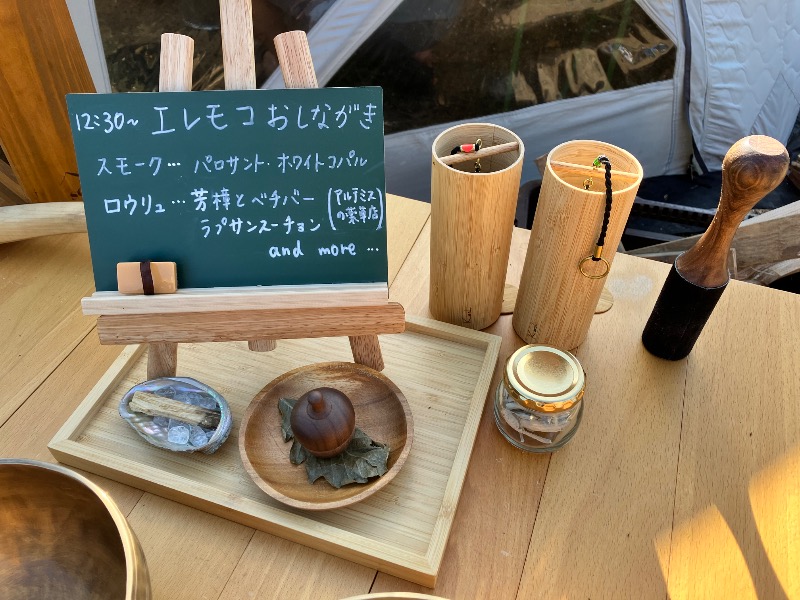 12:30~ エレモコ おしながき
スモーク… パロサント・ホワイトコパル
ロウリュ… 芳樟とベチバー (アルテミスの薬草店)
ラプサンスーチョン
and more …